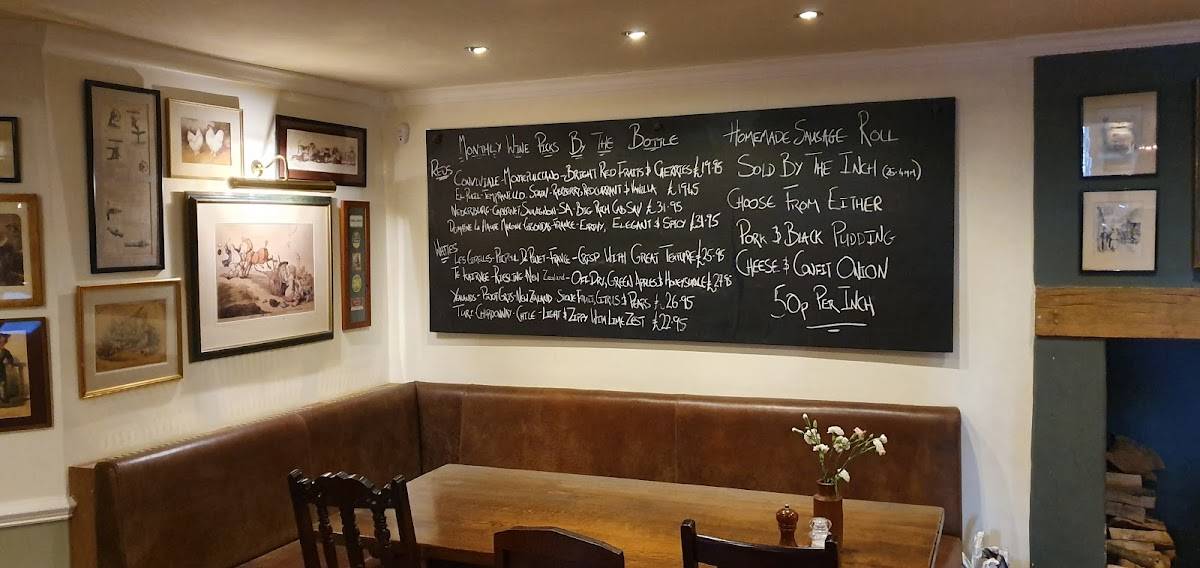 Monthly Wine Picks By The Bottle
Reds
Conviviale - Montepulciano - Bright Red Fruits & Cherries £19.95
Tempranillo, Spain - Redcurrant & Vanilla £19.65
Nederburg - Cabernet Sauvignon - SA - Big Rich Cab Sav £31.95
France - Elegant & Spicy £31.95
Whites
Picpoul De Pinet - France - Crisp With Great Texture £25.95
Riesling - New Zealand - Off Dry, Green Apples & Honeysuckle £27.95
Pinot Gris - New Zealand Stone Fruit, Citrus & Pears £26.95
Chardonnay - Chile - Light & Zippy With Lime Zest £22.95
Homemade Sausage Roll
Sold By The Inch (25.4mm)
Choose From Either
Pork & Black Pudding
Cheese & Confit Onion
50p Per Inch